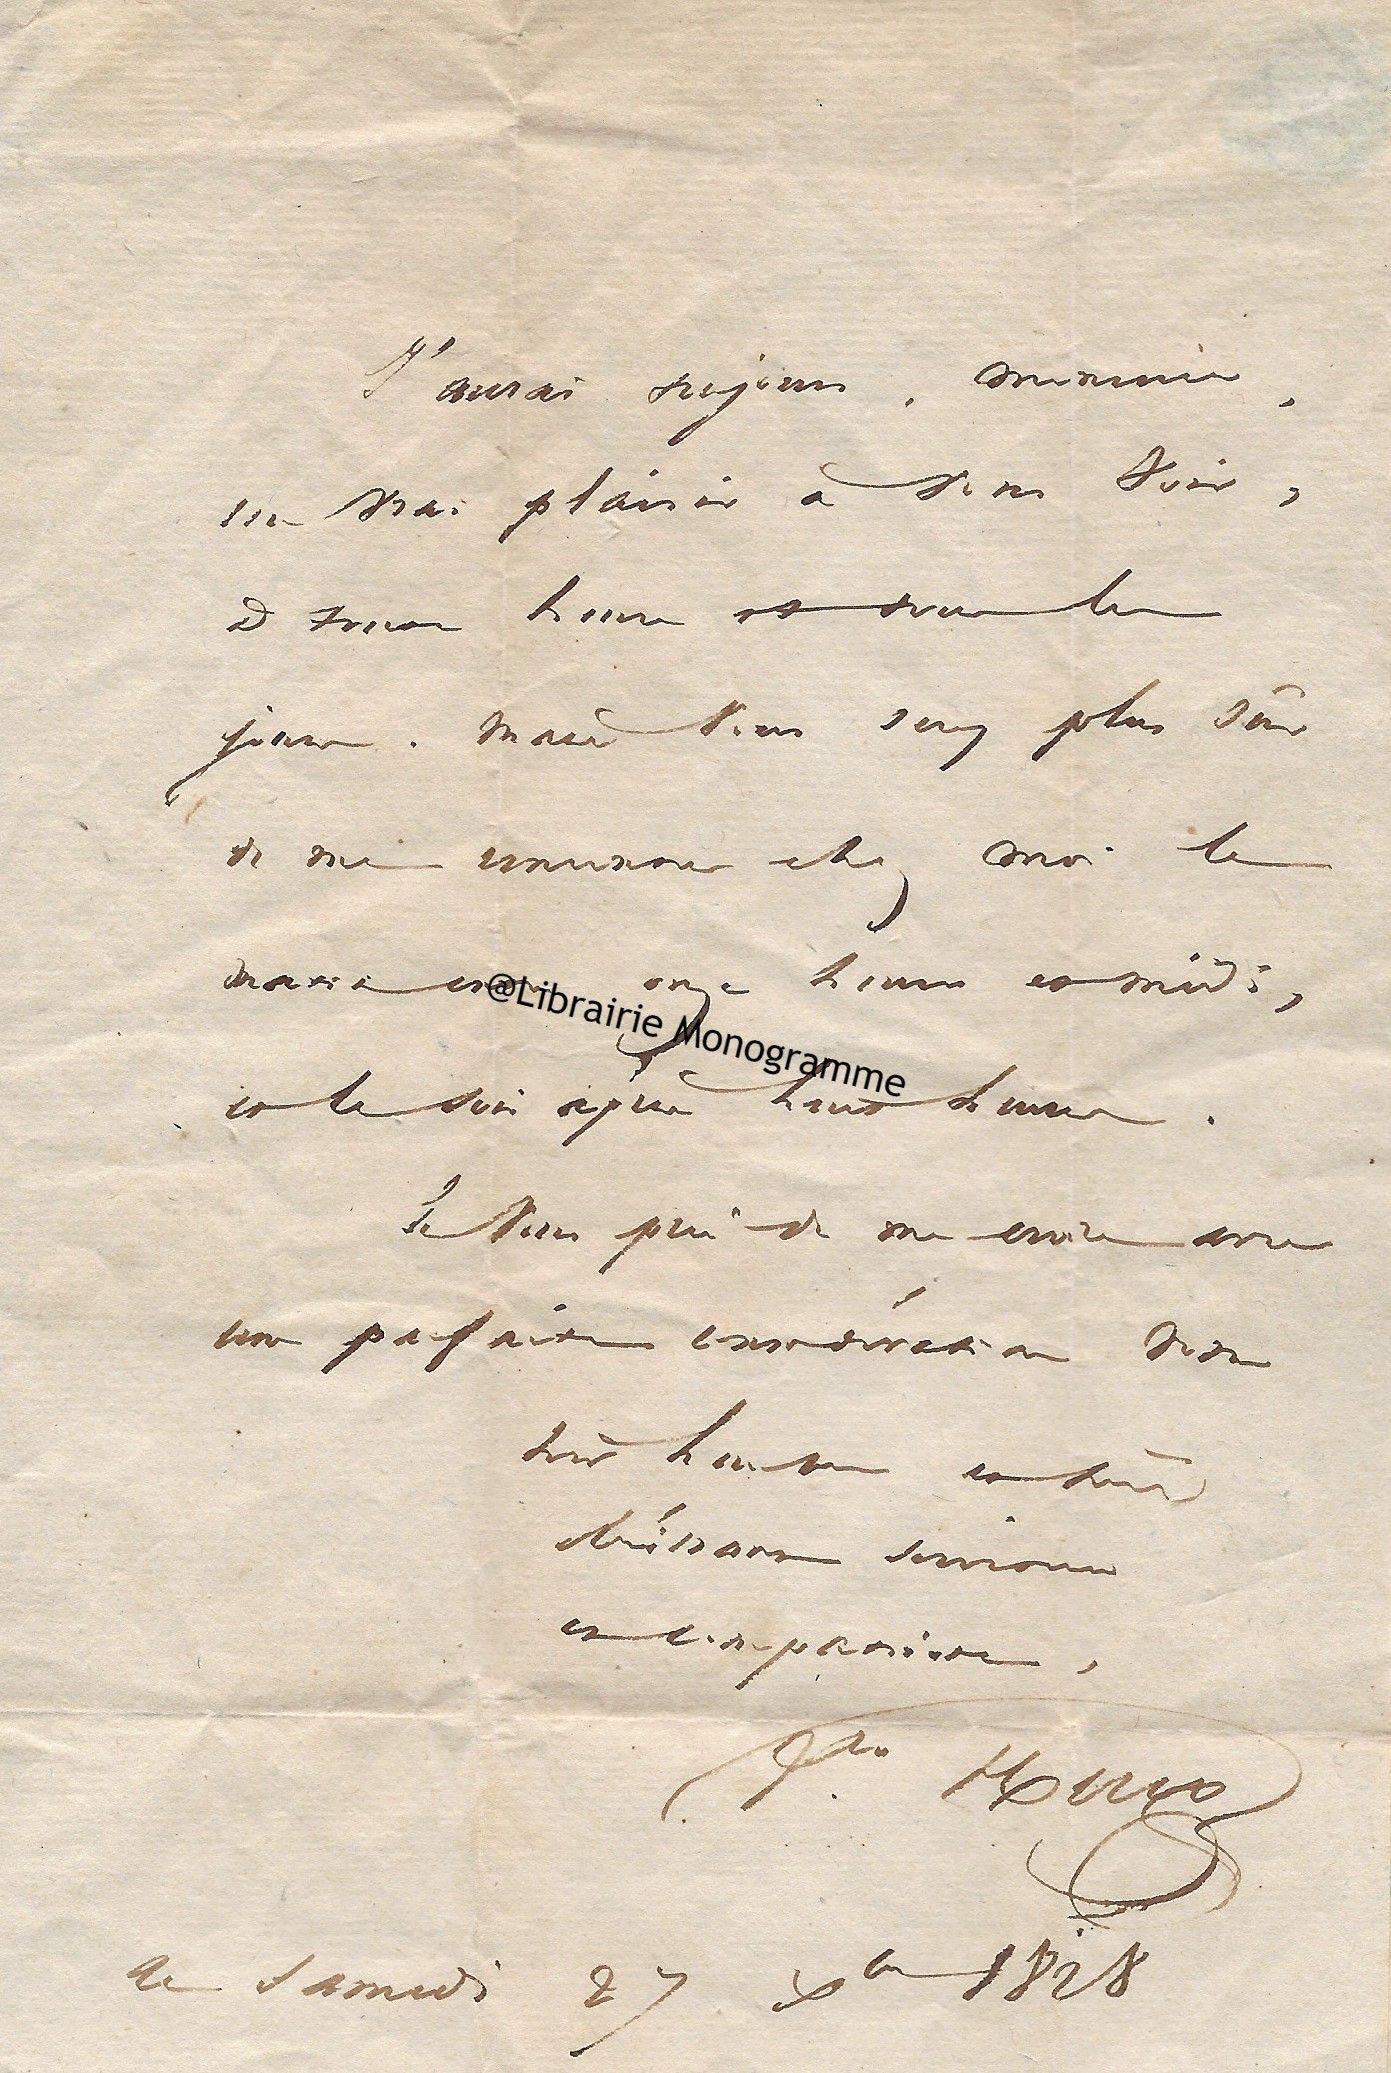 J'aurai toujours, monsieur,
un vrai plaisir à vous voir,
à toute heure et tous les
jours. Mais vous serez plus sûr
de me rencontrer chez moi le
matin entre onze heures et midi,
@Librairie Monogramme
et le soir après huit heures.
Je vous prie de me croire avec
une parfaite considération votre
très humble et très
obéissant serviteur
et compatriote,
Vor. Hugo
Ce samedi 27 Xbre 1828